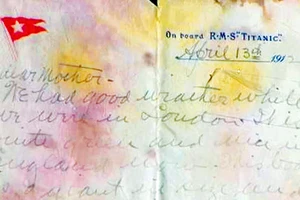 On board R·M·S "TITANIC".
April 13th 191
Mother -
We had good weather while
we were in London. It is
green and nice in
now.
giant in size